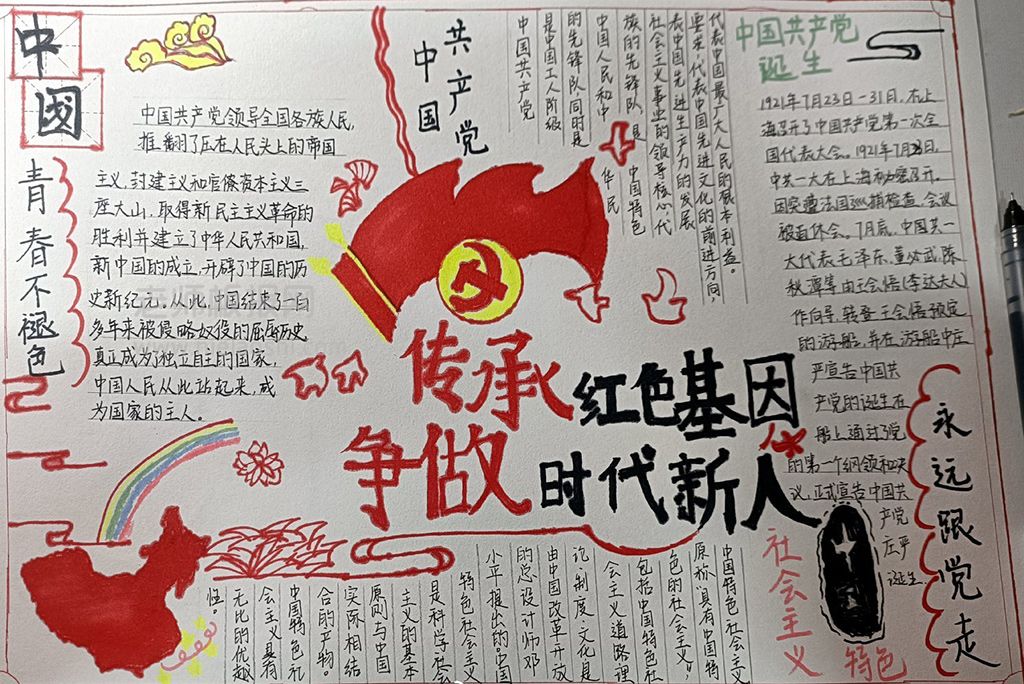 中国
青春不褪色
中国共产党领导全国各族人民,
推翻了压在人民头上的帝国
主义,封建主义和官僚资本主义三
座大山,取得新民主主义革命的
胜利并建立了中华人民共和国,
新中国的成立,开辟了中国的历
史新纪元。从此,中国结束了一百
多年来被侵略奴役的屈辱历史
真正成为了独立自主的国家,
中国人民从此站起来,成
为国家的主人。
中国
共产党
中国共产党
是中国工人阶级
的先锋队同时是
中国人民和中华民
族的先锋队,是中国特色
社会主义事业的领导核心,代
表中国先进生产力的发展
要求,代表中国先进文化的前进方向,
代表中国最广大人民的根本利益。
中国共产党
诞生
1921年7月23日-31日,在上
海召开了中国共产党第一次全
国代表大会。1921年7月23日,
中共一大在上海秘密召开。
因突遭法国巡捕检查,会议
被迫休会。7月底,中国共一
大代表毛泽东、董必武、陈
秋潭等由王会悟(李达夫人)
作向导,转登王会悟预定
的游船,并在游船中庄
严宣告中国共
产党的诞生在
船上通过了党
的第一个纲领和决
议,正式宣告中国共
产党
庄严
诞生.
传承红色基因
争做时代新人
永远跟党走
社会主义
特色
中国特色社会主义
原称“具有中国特
色的社会主义”,
包括中国特色社
会主义道路理
论、制度、文化是
由中国改革开放
的总设计师邓
小平提出的。中国
特色社会主义
是科学社会
主义的基本
原则与中国
实际相结
合的产物。
中国特色社
会主义具有
无比的优越
性。